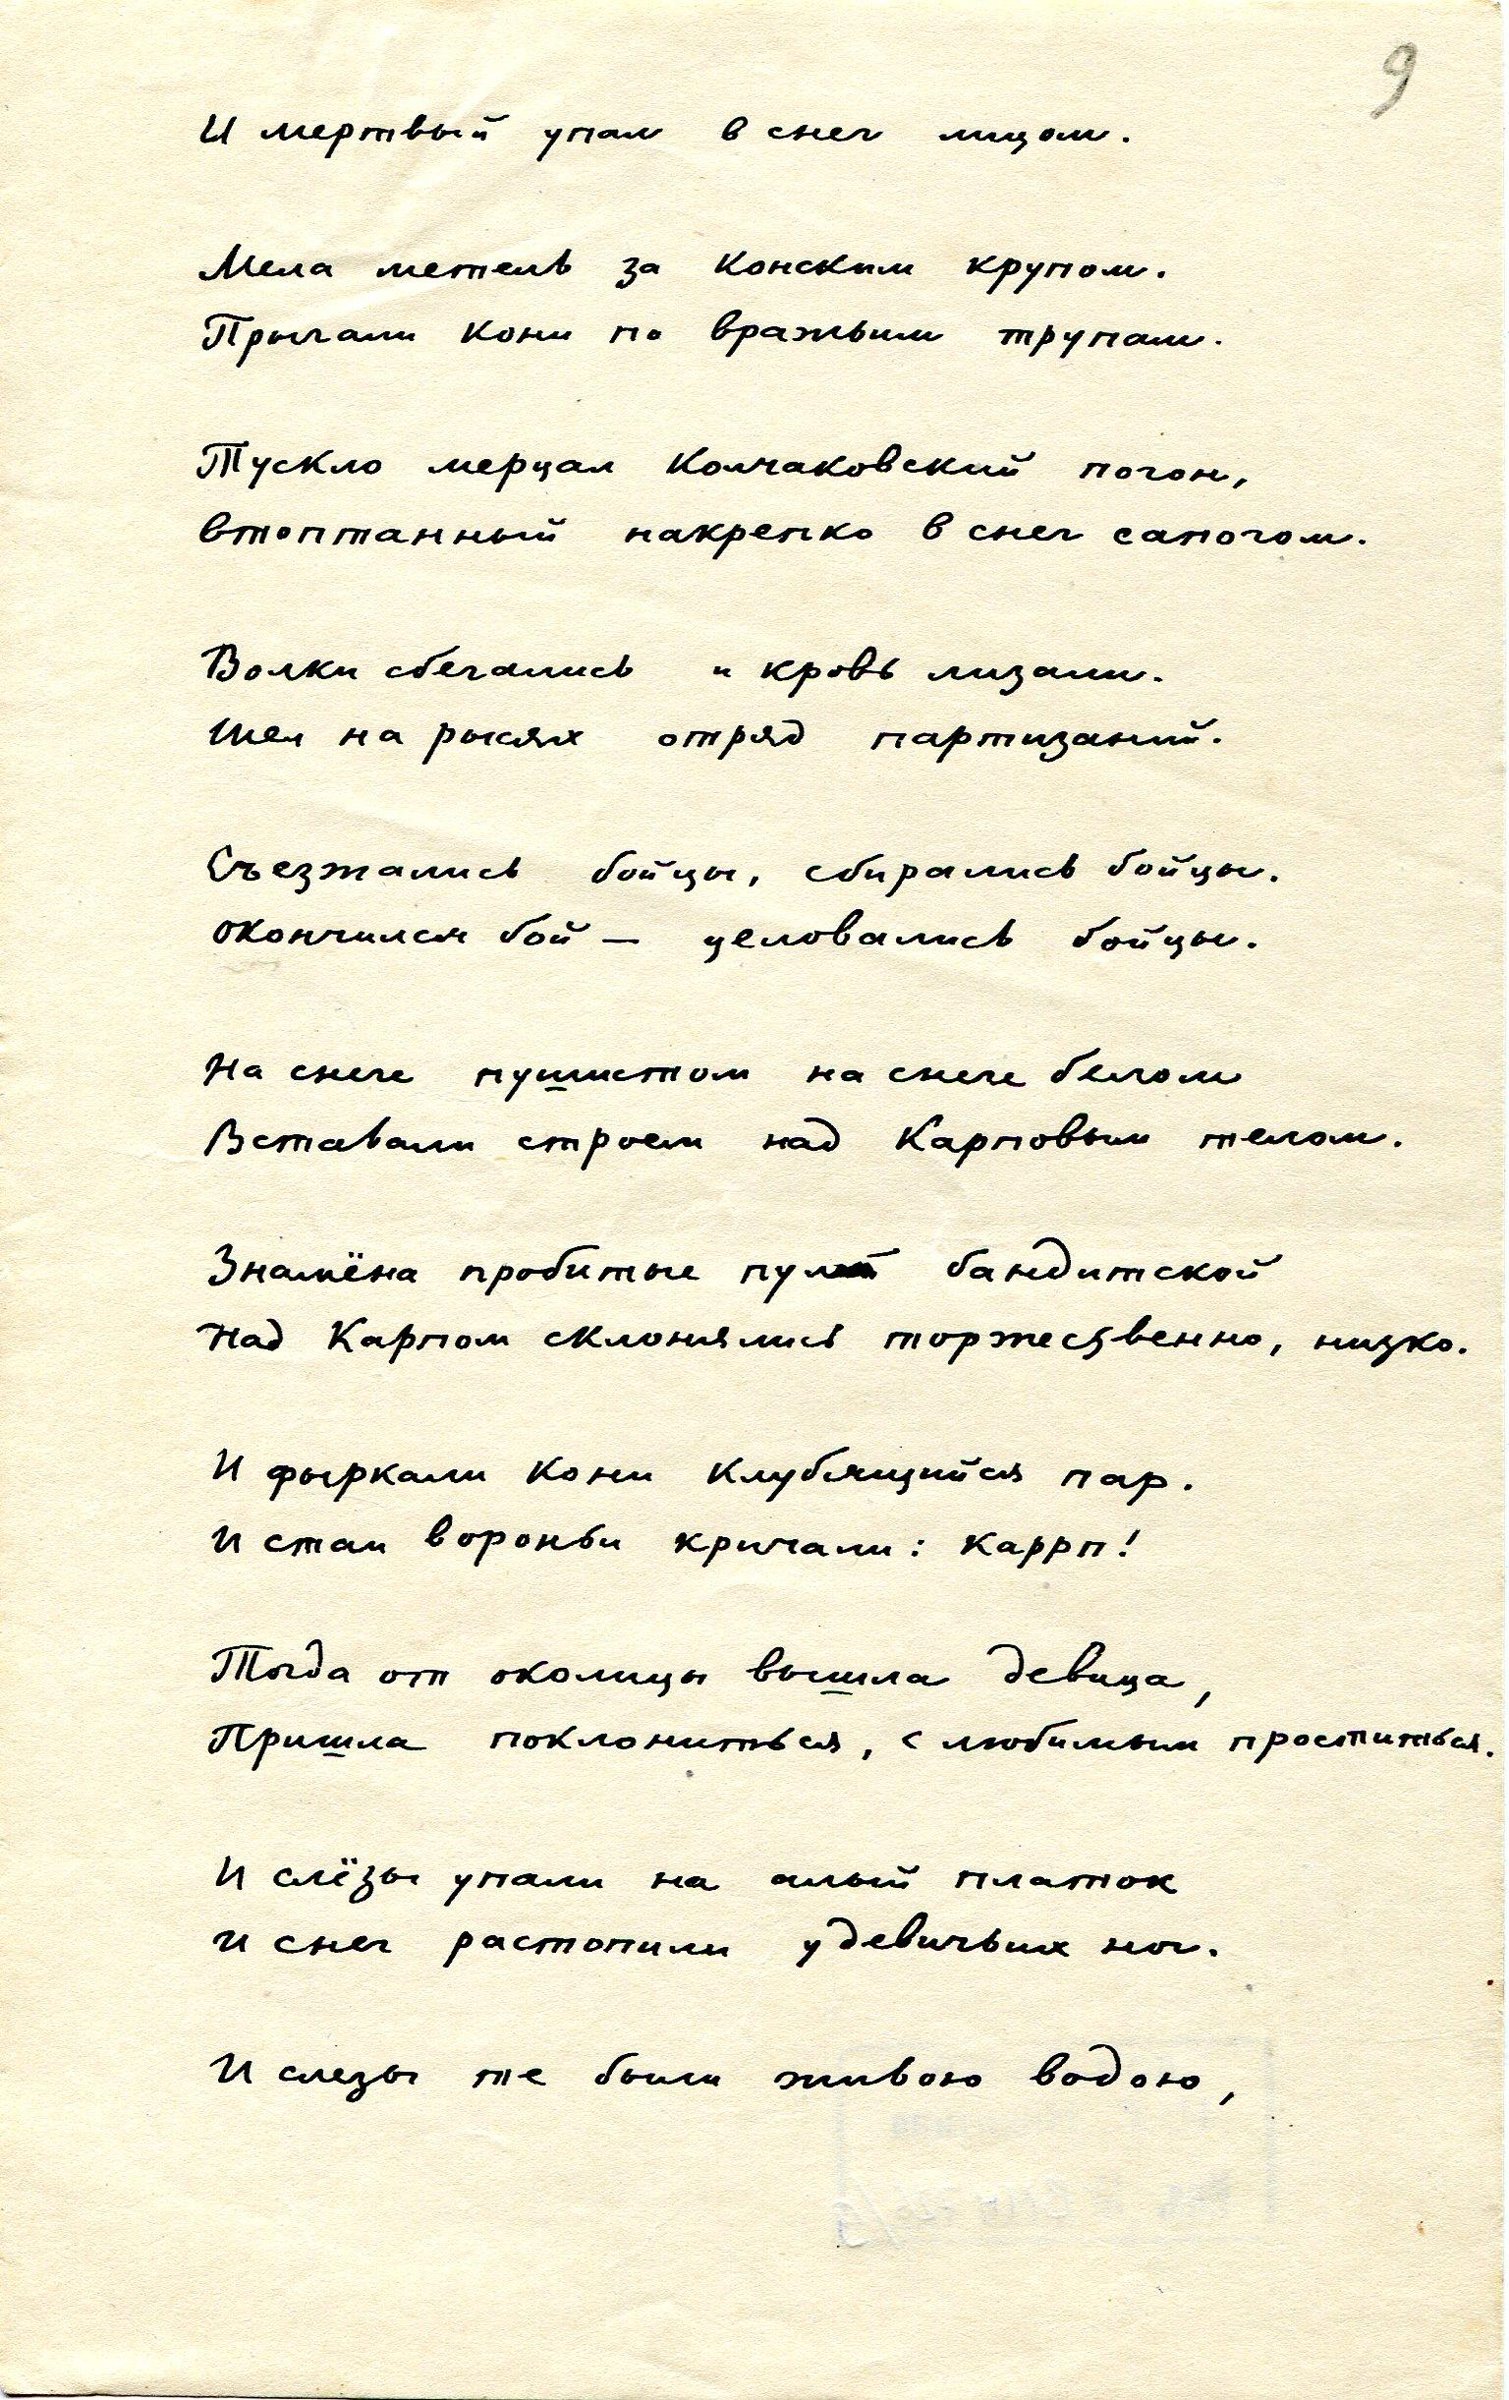 9
И мертвый упал в снег лицом.
Мела метель за конским крупом.
Прыгали кони по вражьим трупам.
Тускло мерцал Колчаковский погон,
втоптанный накрепко в снег сапогом.
Волки сбегались и кровь лизали.
Шел на рысях отряд партизаний.
Съезжались бойцы, сбирались бойцы.
Окончился бой — целовались бойцы.
На снеге пушистом на снеге белом
Вставали строем над Карповым телом.
Знамёна пробитые пулей бандитской
Над Карпом склонялись торжественно, низко.
И фыркали кони клубящийся пар.
И стаи вороньи кричали: Каррп!
Тогда от околицы вышла девица,
Пришла поклониться, с любимым проститься.
И слёзы упали на алый платок
И снег растопили у девичьих ног.
И слезы те были живою водою,